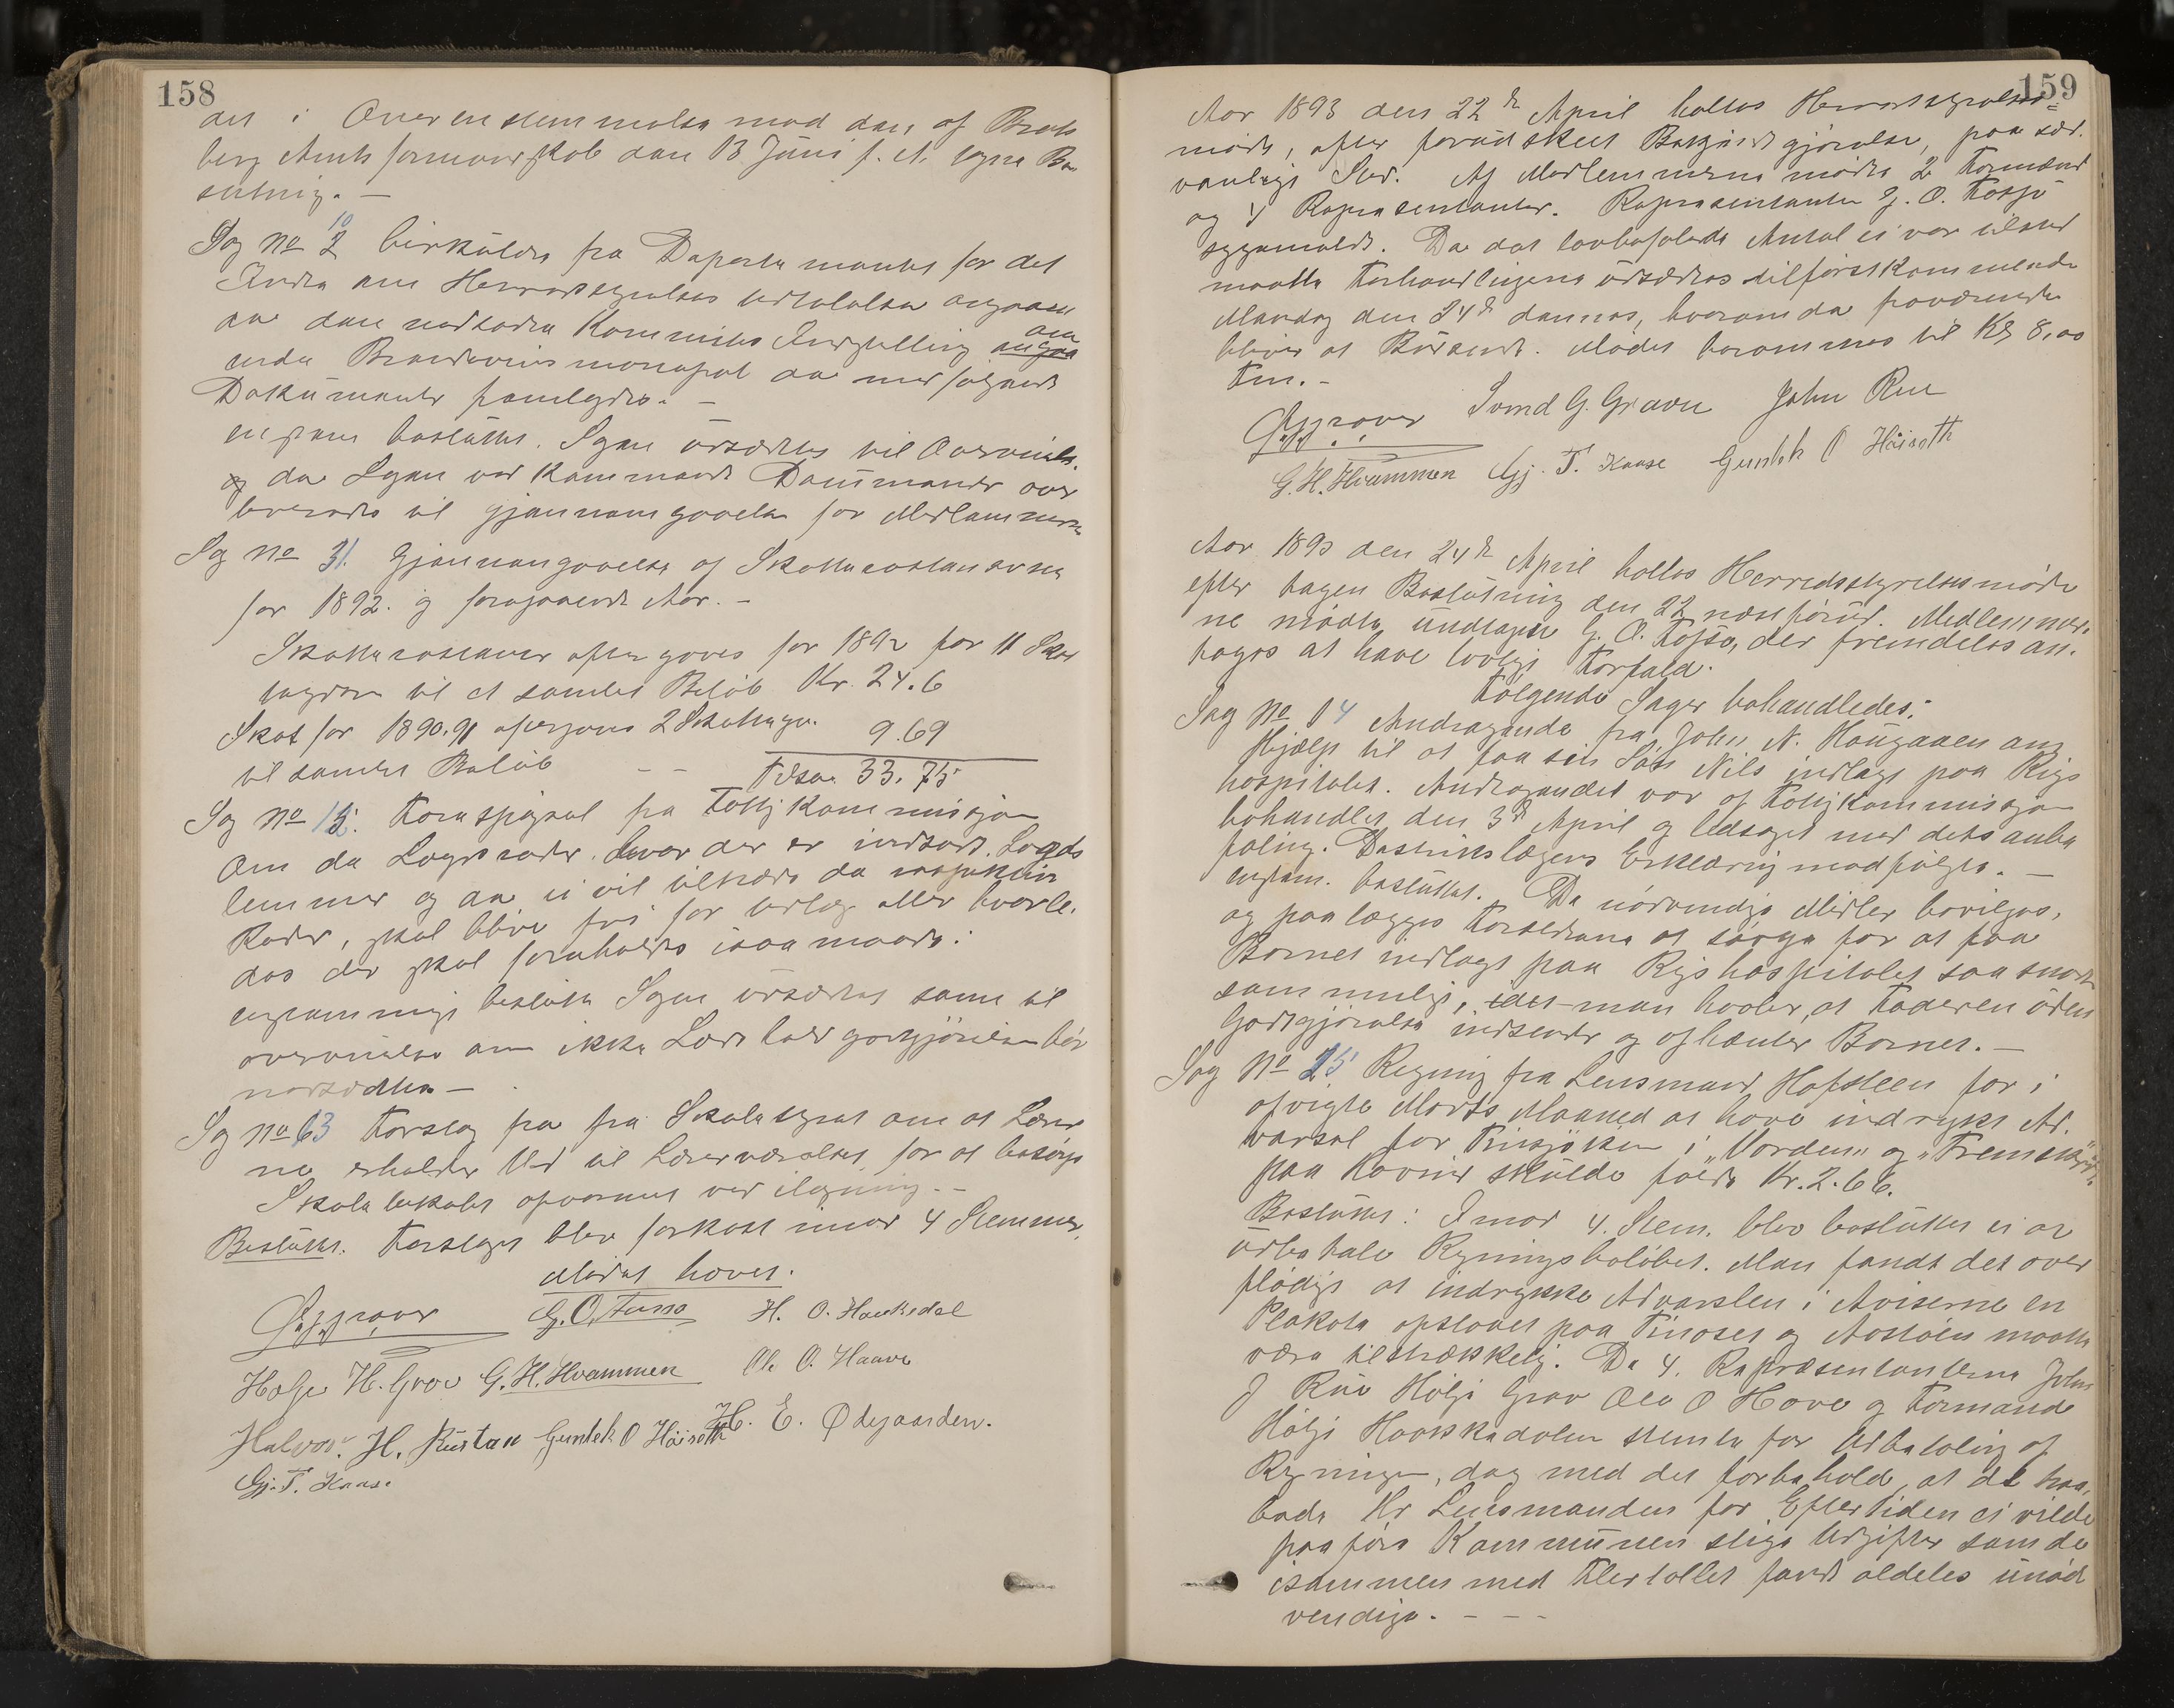 158
det i Overensstemmelse med den af Brats
berg Amts formandskab den 13 Juni f. A. tagne Be
slutning. —
Sag No 2 10 Cirkulære fra Departementet for det
Indre om Herredsstyrelsens Udtalelse angaaen
de den nedsatte Komites Indstilling angaa om
ende Brændevinsmonopol da medfølgende
Dokumenter fremlagdes. —
enstem besluttet. Sagen udsættes til Overveielse.
og da Sagen ved kommende Dokumenter over
leveredes til gjennemgaaelse for Medlemmerne
Sag No 31. Gjennemgaaelse af Skatterestancerne
for 1892. og foregaaende Aar. —
Skatterestancer eftergives for 1892 for 11 Skat
tegdere til et samlet Beløb Kr. 24.6
Skat for 1890.91 eftergives 2 Skatteyder. 9.69
til samlet Beløb — — Tilsa. 33.75
Sag No 12. Forespørsel fra Fattigkommissjon
Om de Lægdsroder. hvor der er indsat. Lægds
lemmer og der ei vil tilstræde de respektive
Roder, skal blive fri for Udlæg eller hvorle.
des der skal forholdes isaa maade:
enstemmigt besluttet Sagen udsættes samt til
overveielse om ikke Læds hold godtgjørelsen bør
nedsættes —
Sag No 63 Forslag fra fra Skolestyret om at Lærer
ne erholder Ved til Lærerværelset for at besørge
Skolelokalet opvarmet ved ilægning. —
Besluttet. Forslaget blev forkastet imod 4 Stemmer.
Mødet hævet.
G. O. Fusso H. O. Haukedal
Holje H. Grov G. H. Hvammen Ole O. Haave
Halvor. H. Rustan Gunlek O Høiseth H. E. Ødegaarden.
Gj. T. Kaase
159
Aar 1893 den 22de April holtes Herredsstyrelses=
møde, efter forudskeet Bekjendtgjørelse, paa sæd.
vanlige Sted. Af Medlemmerne mødte 2 Formænd
og 4 Repræsentanter. Repræsentanten G. O. Fossø
sygemeldt. Da det lovbefalede Antal ei var tilsted
maatte Forhandlingerne udsættes til førstkommende
Mandag den 24de dennes, hvorom de fraværende
bliver at Budsendt. Mødet berammes til Kl 8,00
Fm. —
Svend G. Graver John Rue
G. H. Hvammen Gj. T. Kaase Gunlek O Høiseth
Aar 1893 den 24de April holtes Herredsstyrelsesmøde
efter tagen Beslutning den 22 næstforud. Medlemmer.
ne mødte undtagen G. O. Fosso, der fremdeles an.
toges at have lovligt Forfald.
Følgende Sager behandledes:
Sag No 14 Andragende fra John N. Haugaaen om
Hjælp til at faa sin Søn Nils indlagt paa Rigs
hospitalet. Andragendet var af Fattigkommissjon
behandlet den 3de April og ledsaget med dets anbe
faling. Distriktslægens Erklæring medfølgte. —
enstem. besluttet. De nødvendige Midler bevilges,
og paalægges Forældrene at sørge for at faa
Barnet indlagt paa Rigshospitalet saa snart
som muligt, idet man haaber, at Faderen uden
Godtgjørelse indsender og afhenter Barnet. —
Sag No 25 Regning fra Lensmand Hofsteen for i
afvigte Marts Maaned at have indrykt Ad.
varsel for Tinsjøisen i „Varden“ og „Fremskridt“
paa hvormed skulde falde Kr. 2.66.
Besluttet: Imod 4. Stem. blev besluttet ei at
udbetale Regningsbeløbet. Man fandt det over
flødigt at indrykke Advarslen i Aviserne en
Plakata opslaaet paa Tinoset og maatte
være tilstrækkelig. De 4. Repræsentanterne John
J Rue Holje Grov Ole O Hove og Formand
Holje Haukkadalen stemte for Udbetaling af
Regningen, dog med det forbehold at de haa,
bede Hr Lensmanden for Eftertiden ei vilde
paaføre Kommunen slige Udgifter som de
isammen med Flertallet fandt aldeles unød
vendige. — — —